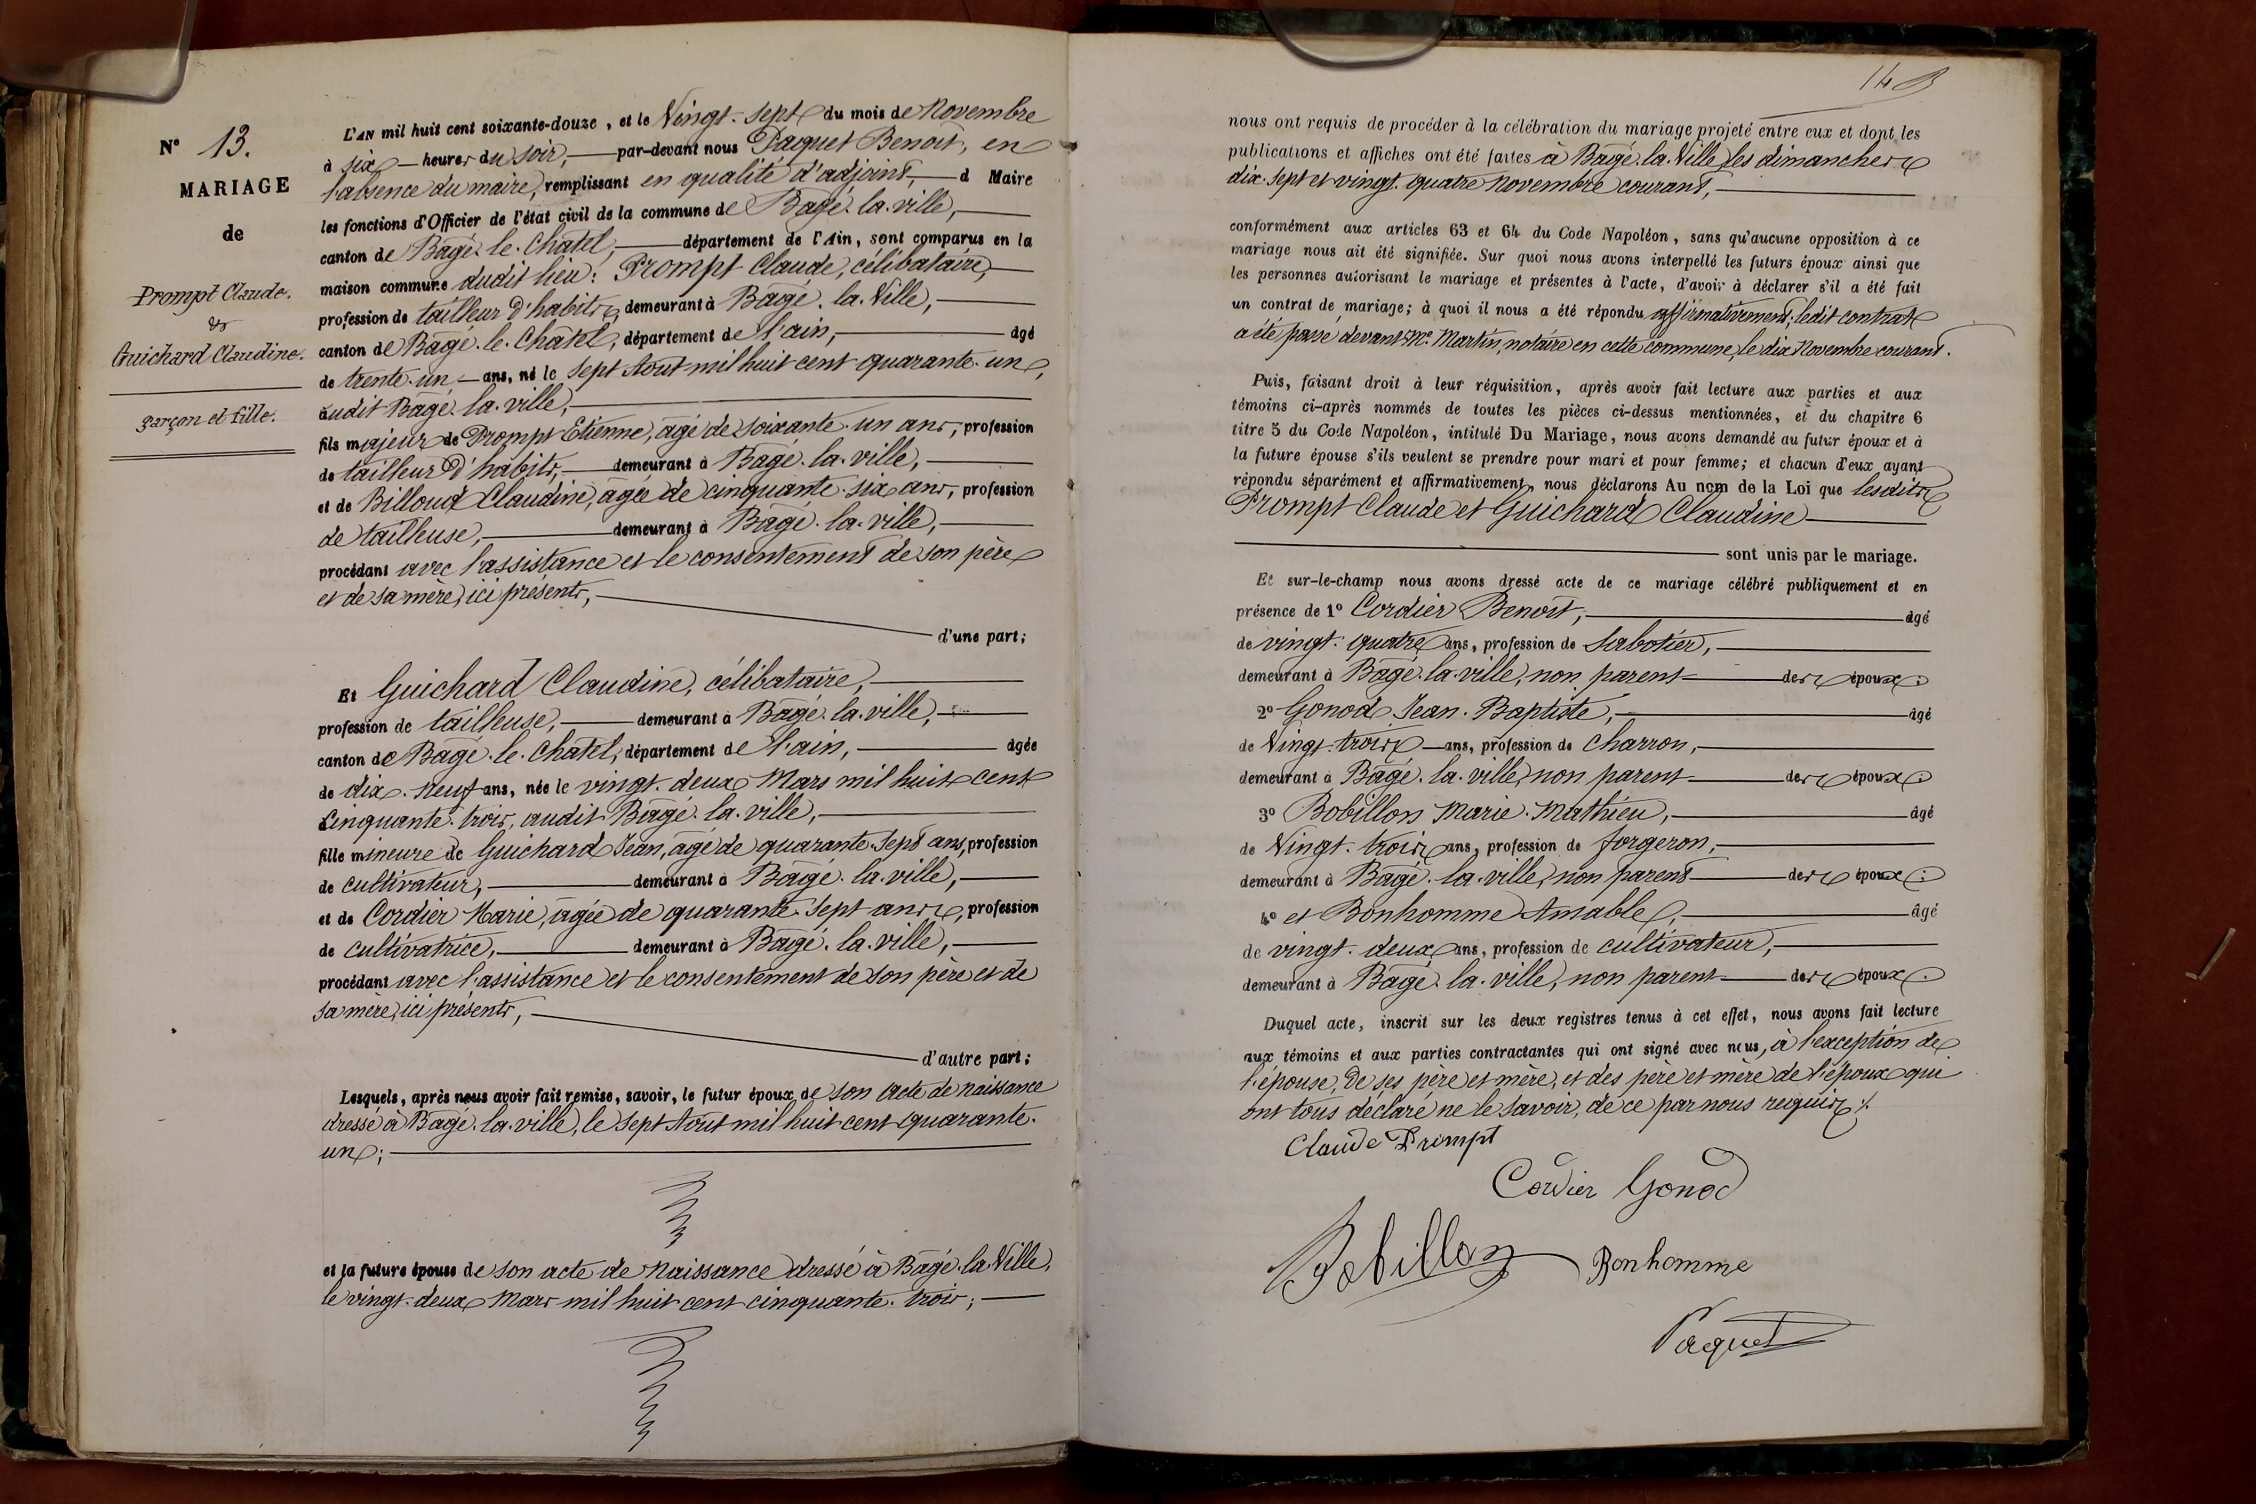 N° 13.
MARIAGE
de
Prompt Claude.
&
Guichard Claudine.
garçon et fille.
L'AN mil huit cent soixante-douze, et le Vingt-sept du mois de Novembre
à six heures du soir, par-devant nous Paquet Benoit, en
l'absence du maire, remplissant en qualité d'adjoint, d Maire
les fonctions d'Officier de l'état civil de la commune de Bâgé-la-ville,
canton de Bâgé-le-Châtel, département de l'Ain, sont comparus en la
maison commune dudit lieu: Prompt Claude, célibataire,
profession de tailleur d'habits, demeurant à Bâgé-la-Ville,
canton de Bâgé-le-Châtel, département de l'ain, âgé
de trente-un ans, né le sept Aout mil huit cent quarante-un,
audit Bâgé-la-ville,
fils majeur de Prompt Etienne, âgé de soixante-un ans, profession
de tailleur d'habits, demeurant à Bâgé-la-ville,
et de Billoud Claudine, âgée de cinquante-six ans, profession
de tailleuse, demeurant à Bâgé-la-ville,
procédant avec l'assistance et le consentement de son père
et de sa mère, ici présents,
d'une part;
Et Guichard Claudine, célibataire,
profession de tailleuse, demeurant à Bâgé-la-ville,
canton de Bâgé-le-Châtel, département de l'ain, âgée
de dix-neuf ans, née le vingt-deux Mars mil huit cent
cinquante-trois, audit Bâgé-la-ville,
fille mineure de Guichard Jean, âgé de quarante-sept ans, profession
de cultivateur, demeurant à Bâgé-la-ville,
et de Cordier Marie, âgée de quarante-sept ans, profession
de cultivatrice, demeurant à Bâgé-la-ville,
procédant avec l'assistance et le consentement de son père et de
sa mère, ici présents,
d'autre part;
Lesquels, après nous avoir fait remise, savoir, le futur époux de son acte de naissance
dressé à Bâgé-la-ville, le sept Aout mil huit cent quarante-
un;
et la future épouse de son acte de naissance dressé à Bâgé-la-Ville,
le vingt-deux Mars mil huit cent cinquante-trois;
148
nous ont requis de procéder à la célébration du mariage projeté entre eux et dont les
publications et affiches ont été faites à Bâgé-la-Ville, les dimanches
dix-sept et vingt-quatre Novembre courant,
conformément aux articles 63 et 64 du Code Napoléon, sans qu'aucune opposition à ce
mariage nous ait été signifiée. Sur quoi nous avons interpellé les futurs époux ainsi que
les personnes autorisant le mariage et présentes à l'acte, d'avoir à déclarer s'il a été fait
un contrat de mariage; à quoi il nous a été répondu affirmativement; ledit contrat
a été passé devant Me Martin, notaire en cette commune, le dix Novembre courant.
Puis, faisant droit à leur réquisition, après avoir fait lecture aux parties et aux
témoins ci-après nommés de toutes les pièces ci-dessus mentionnées, et du chapitre 6
titre 5 du Code Napoléon, intitulé Du Mariage, nous avons demandé au futur époux et à
la future épouse s'ils veulent se prendre pour mari et pour femme; et chacun d'eux ayant
répondu séparément et affirmativement, nous déclarons Au nom de la Loi que lesdits
Prompt Claude et Guichard Claudine
sont unis par le mariage.
Et sur-le-champ nous avons dressé acte de ce mariage célébré publiquement et en
présence de 1° Cordier Benoît, âgé
de vingt-quatre ans, profession de Sabotier,
demeurant à Bâgé-la-ville, non parent des époux;
2° Gonod Jean-Baptiste, âgé
de Vingt-trois ans, profession de Charron,
demeurant à Bâgé-la-ville, non parent des époux;
3° Bobillon Marie-Mathieu, âgé
de Vingt-trois ans, profession de forgeron,
demeurant à Bâgé-la-ville, non parent des époux;
4° et Bonhomme Amable, âgé
de vingt-deux ans, profession de cultivateur,
demeurant à Bâgé-la-ville, non parent des époux.
Duquel acte, inscrit sur les deux registres tenus à cet effet, nous avons fait lecture
aux témoins et aux parties contractantes qui ont signé avec nous, à l'exception de
l'épouse, de ses père et mère, et des père et mère de l'époux qui
ont tous déclaré ne le savoir, de ce par nous requis.
Claude Prompt
Cordier Gonod
Bobillon Bonhomme
Paquet